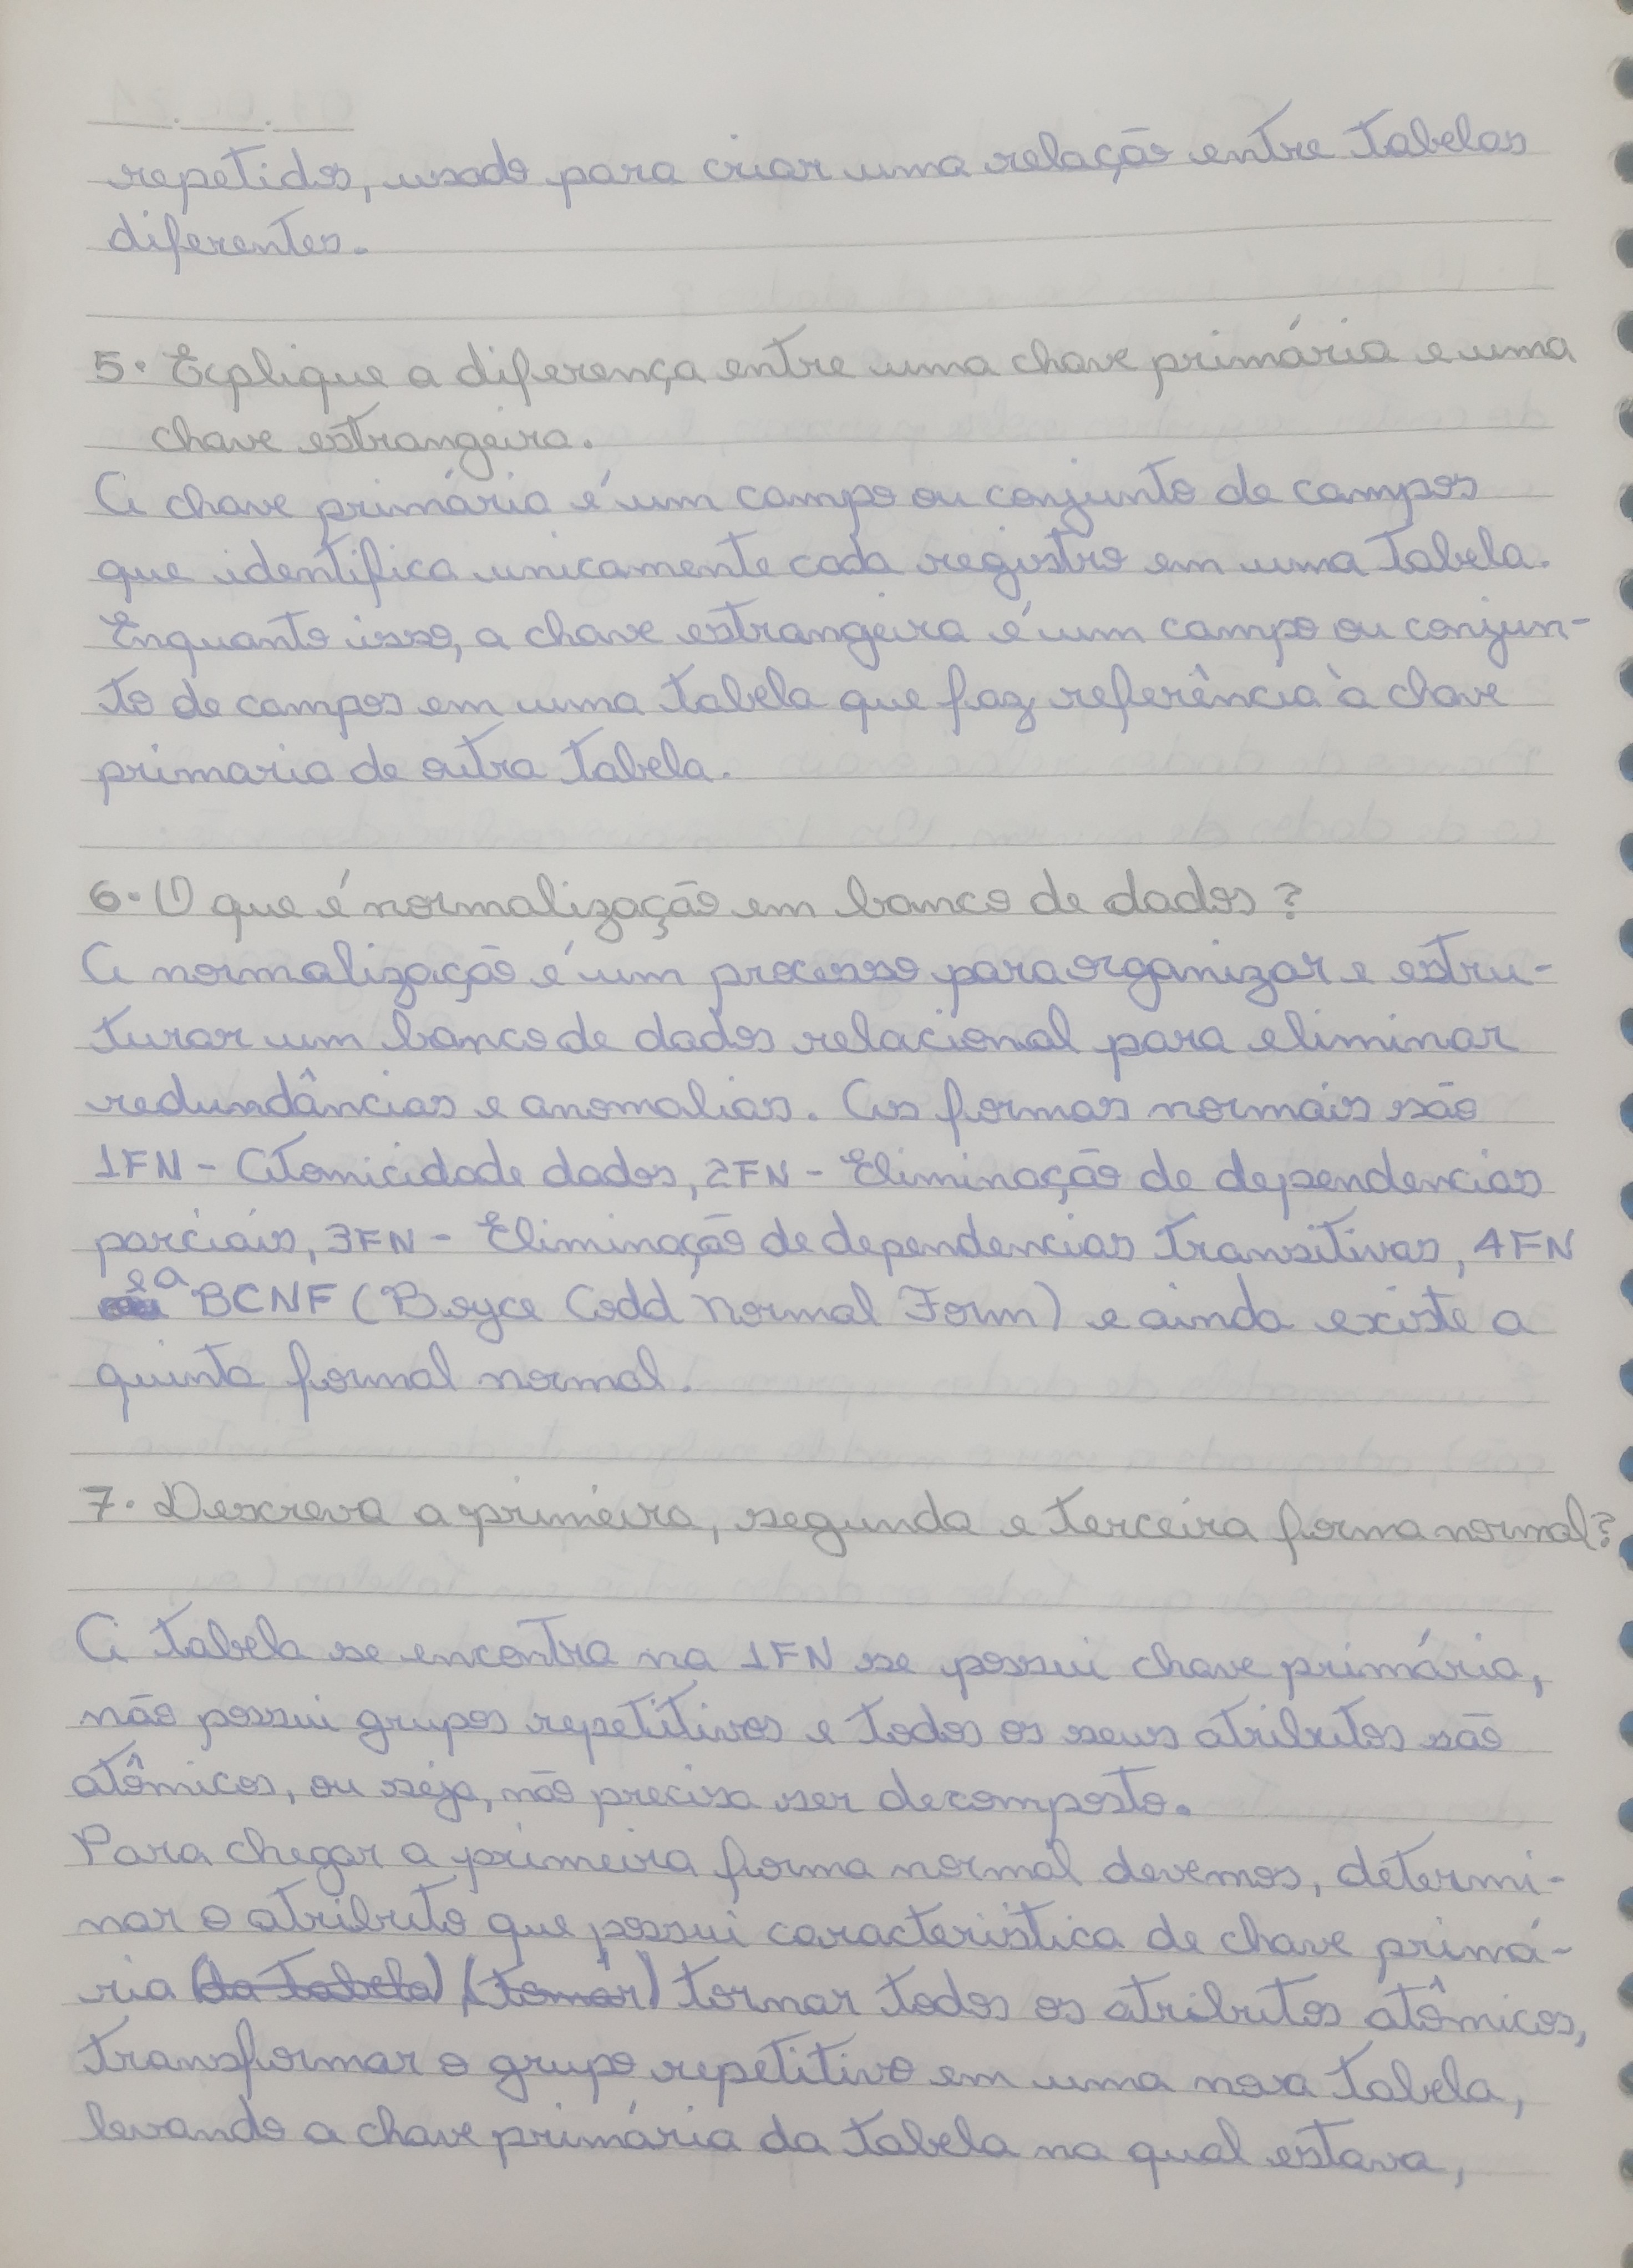 repetidos, usado para criar uma relação entre tabelas
diferentes.
5. Explique a diferença entre uma chave primária e uma
chave estrangeira.
A chave primária é um campo ou conjunto de campos
que identifica unicamente cada registro em uma tabela.
Enquanto isso, a chave estrangeira é um campo ou conjun-
to de campos em uma tabela que faz referência à chave
primaria de outra tabela.
6. O que é normalização em banco de dados?
A normalização é um processo para organizar e estru-
turar um banco de dados relacional para eliminar
redundâncias e anomalias. As formas normais são
1FN - Atomicidade dados, 2FN - Eliminação de dependencias
parciais, 3FN - Eliminação de dependencias transitivas, 4FN
e a BCNF (Boyce Codd Normal Form) e ainda existe a
quinta formal normal.
7. Descreva a primeira, segunda e terceira forma normal?
A tabela se encontra na 1FN se possui chave primária,
não possui grupos repetitivos e todos os seus atributos são
atômicos, ou seja, não precisa ser decomposto.
Para chegar a primeira forma normal devemos, determi-
nar o atributo que possui caracteristica de chave primá-
ria (da tabela), (tomar) tornar todos os atributos atômicos,
transformar o grupo repetitivo em uma nova tabela,
levando a chave primária da tabela na qual estava,